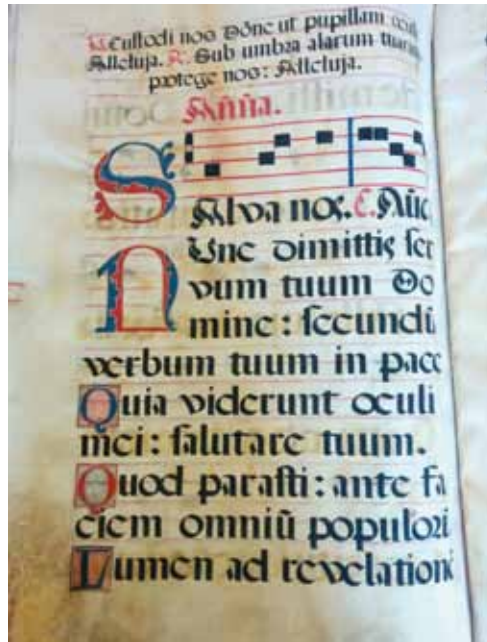 ℣. Cuſtodi nos Dōnc ut pupillam oculi
Alleluja. ℟. Sub umbra alarum tuarum
protege nos: Alleluja.
Añña.
SAlva nos. C. Añc
NUnc dimittis ſer
vum tuum Do
mine: ſecundū
verbum tuum in pace
Quia viderunt oculi
mei: ſalutare tuum.
Quod paraſti: ante fa
ciem omniū populoꝝ
Lumen ad revelationē